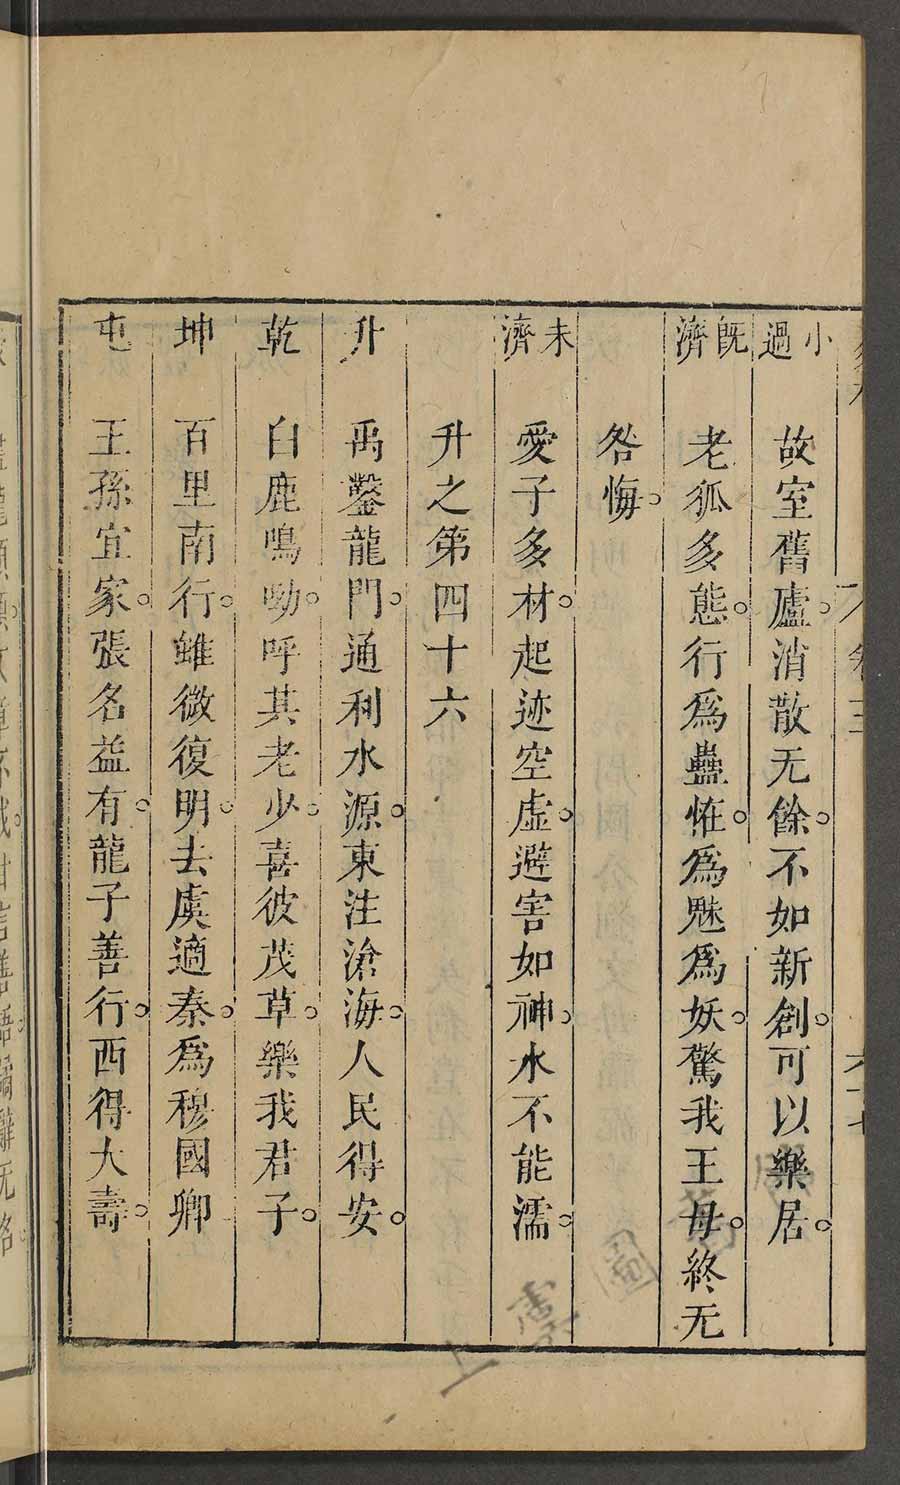 小過 故室舊廬。消散无餘。不如新創。可以樂居。
既濟 老狐多態。行爲蠱恠。爲魅爲妖。驚我王母。終无
咎悔。
未濟 愛子多材。起迹空虛。避害如神。水不能濡。
升之第四十六
升 禹鑿龍門。通利水源。東注滄海。人民得安。
乾 白鹿鳴呦。呼其老少。喜彼茂草。樂我君子。
坤 百里南行。雖微復明。去虞適秦。爲穆國卿
屯 王孫宜家。張名益有。龍子善行。西得大壽。